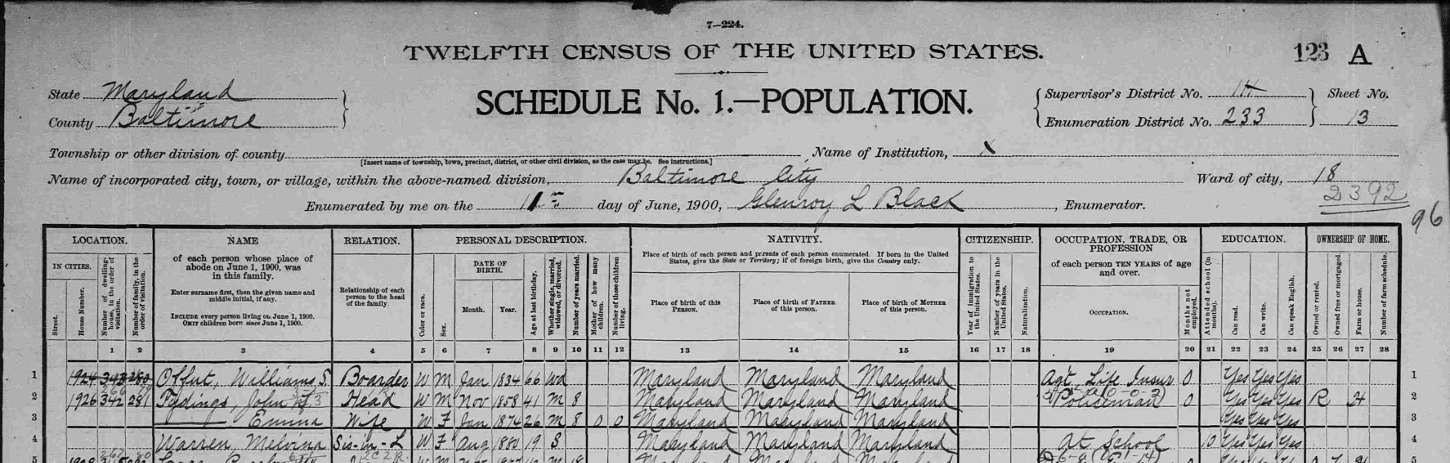 7—224.
TWELFTH CENSUS OF THE UNITED STATES.
123 A
State Maryland
County Baltimore
SCHEDULE No. 1.—POPULATION.
Supervisor's District No. 14
Enumeration District No. 233
Sheet No.
13
Township or other division of county
[Insert name of township, town, precinct, district, or other civil division, as the case may be. See instructions.]
Name of Institution, X
Name of incorporated city, town, or village, within the above-named division, Baltimore City
Ward of city, 18
2392
96
Enumerated by me on the 11th day of June, 1900, Glenroy L Black, Enumerator.
LOCATION. NAME RELATION. PERSONAL DESCRIPTION. NATIVITY. CITIZENSHIP. OCCUPATION, TRADE, OR PROFESSION EDUCATION. OWNERSHIP OF HOME.
IN CITIES.
Street.
House Number.
Number of dwelling-house, in the order of visitation.
Number of family, in the order of visitation.
of each person whose place of abode on June 1, 1900, was in this family.
Enter surname first, then the given name and middle initial, if any.
INCLUDE every person living on June 1, 1900.
OMIT children born since June 1, 1900.
Relationship of each person to the head of the family.
Color or race.
Sex.
DATE OF BIRTH.
Month. Year.
Age at last birthday.
Whether single, married, widowed, or divorced.
Number of years married.
Mother of how many children.
Number of these children living.
Place of birth of each person and parents of each person enumerated. If born in the United States, give the State or Territory; if of foreign birth, give the Country only.
Place of birth of this PERSON.
Place of birth of FATHER of this person.
Place of birth of MOTHER of this person.
Year of immigration to the United States.
Number of years in the United States.
Naturalization.
of each person TEN YEARS of age and over.
OCCUPATION.
Months not employed.
Attended school (in months).
Can read.
Can write.
Can speak English.
Owned or rented.
Owned free or mortgaged.
Farm or house.
Number of farm schedule.
1 2 3 4 5 6 7 8 9 10 11 12 13 14 15 16 17 18 19 20 21 22 23 24 25 26 27 28
1 1924 343 280 Offut, Williams S. Boarder W M Jan 1834 66 Wd Maryland Maryland Maryland Agt. Life Insur 0 Yes Yes Yes 1
2 1926 342 281 John Head W M Nov 1858 41 M 8 Maryland Maryland Maryland Policeman 0 Yes Yes Yes R H 2
3 Emma Wife W F Jan 1874 26 M 8 0 0 Maryland Maryland Maryland Yes Yes Yes 3
4 Warren, Melvina Sis-in-L W F Aug 1880 19 S Maryland Maryland Maryland At School 10 Yes Yes Yes 4
5